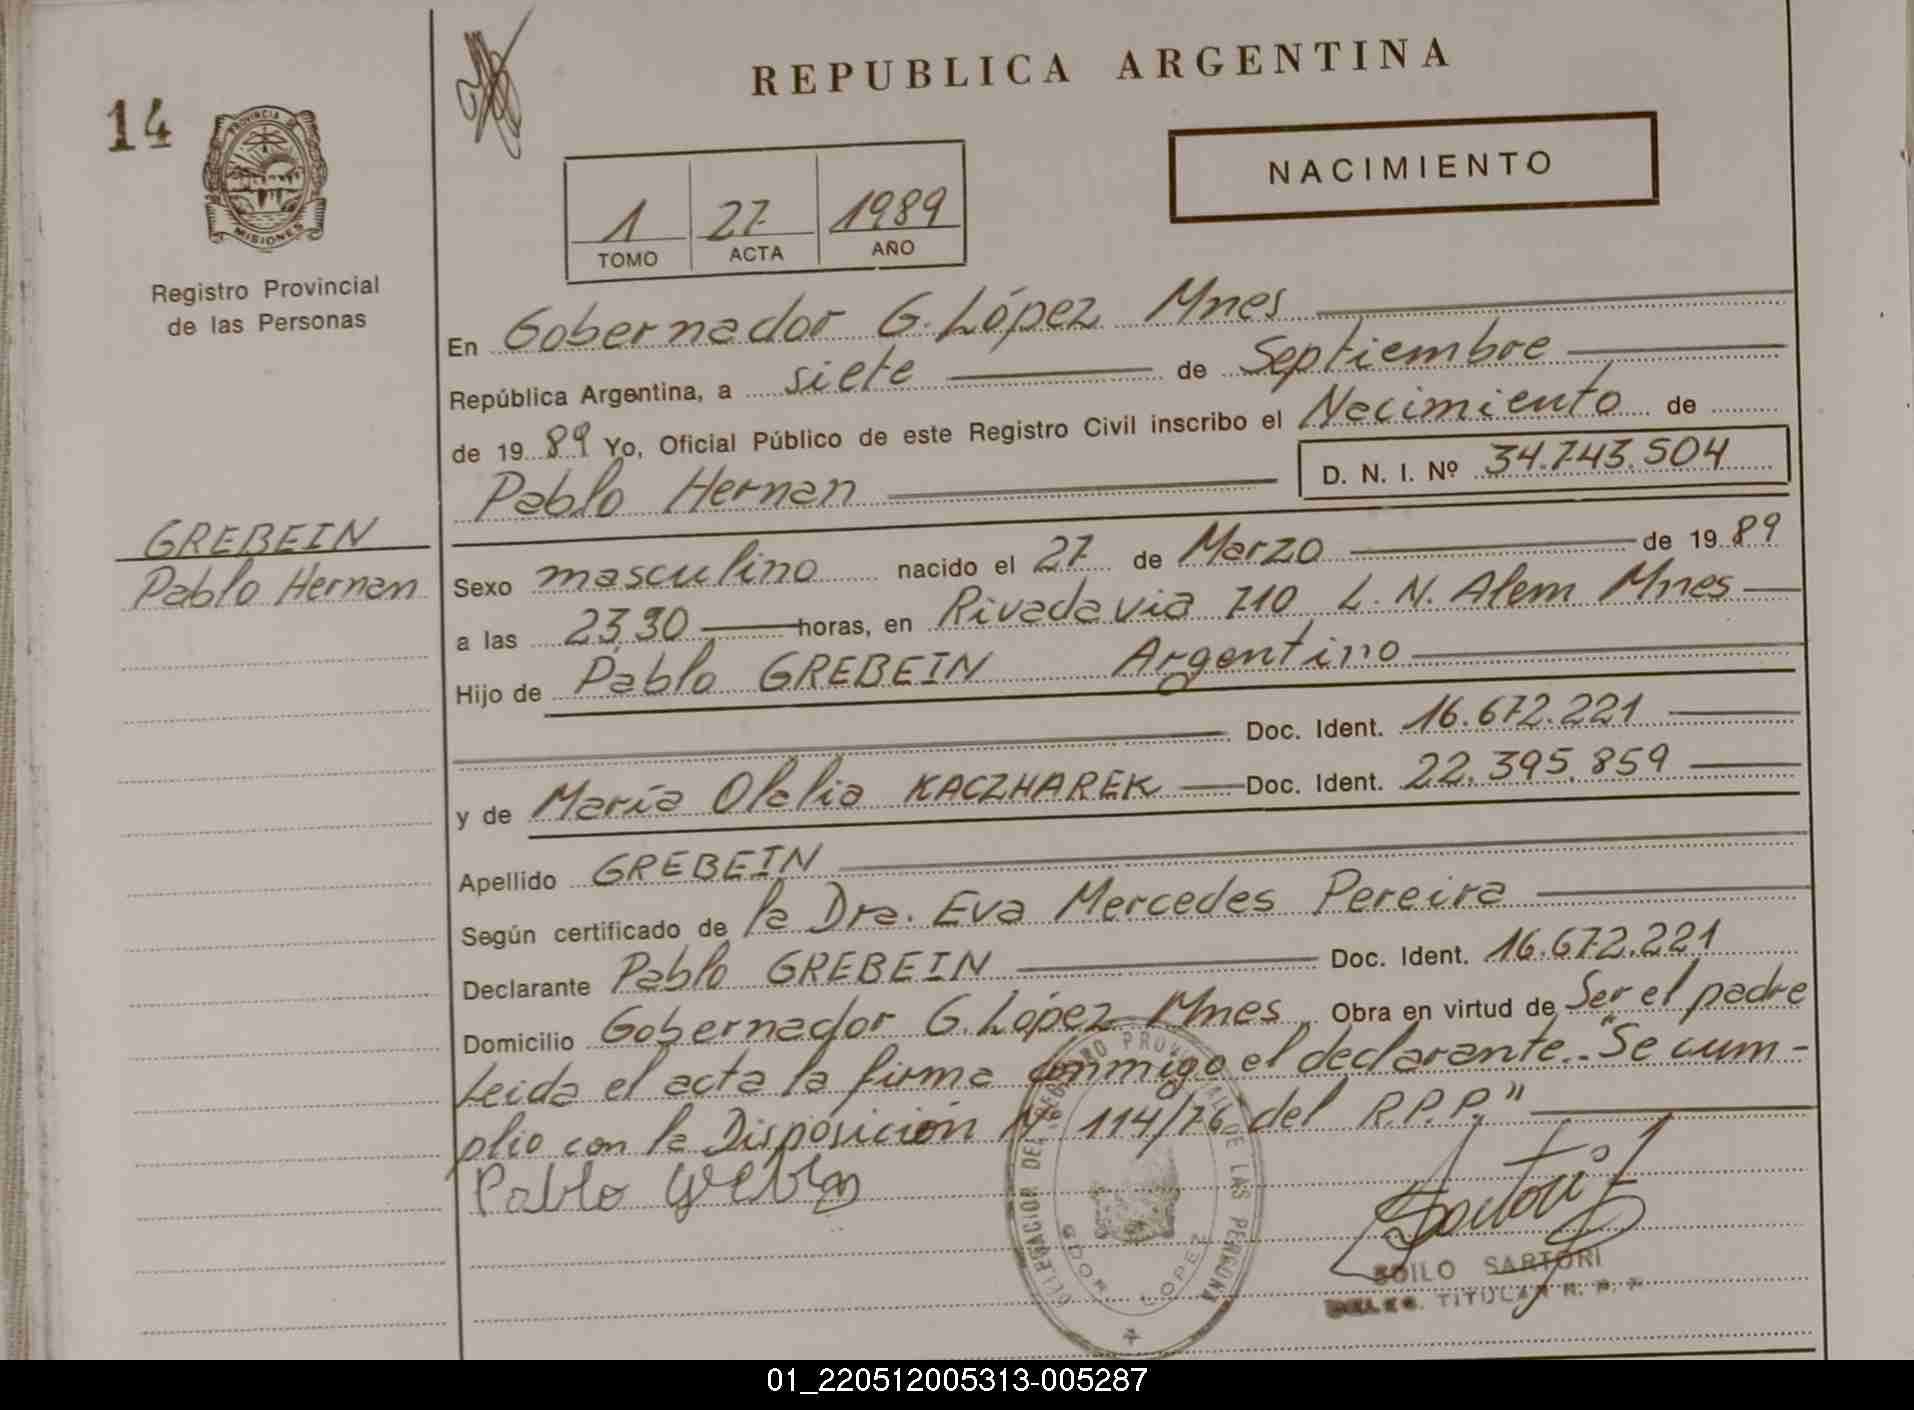 REPUBLICA ARGENTINA
14
PROVINCIA DE
MISIONES
Registro Provincial
de las Personas
NACIMIENTO
1 27 1989
TOMO ACTA AÑO
En Gobernador G. López Mnes
República Argentina, a siete de Septiembre
de 1989 Yo, Oficial Público de este Registro Civil inscribo el Nacimiento de
Pablo Hernan D. N. I. Nº 34.743.504
GREBEIN
Pablo Hernan
Sexo masculino nacido el 27 de Marzo de 1989
a las 23,30 horas, en Rivadavia 710 L. N. Alem Mnes
Hijo de Pablo GREBEIN Argentino
Doc. Ident. 16.672.221
y de María Olalia KACZHAREK Doc. Ident. 22.395.859
Apellido GREBEIN
Según certificado de la Dra. Eva Mercedes Pereira
Declarante Pablo GREBEIN Doc. Ident. 16.672.221
Domicilio Gobernador G. López Mnes Obra en virtud de Ser el padre
Leida el acta la firma conmigo el declarante.. "Se cum-
plio con la Disposición Nº 114/76 del R.P.P."
Pablo Grebin
Sartori
DELEGACION DEL REGISTRO PROVINCIAL DE LAS PERSONAS
GDOR. LOPEZ
SOILO SARTORI
DELEG. TITULAR R. P. P.
01_220512005313-005287